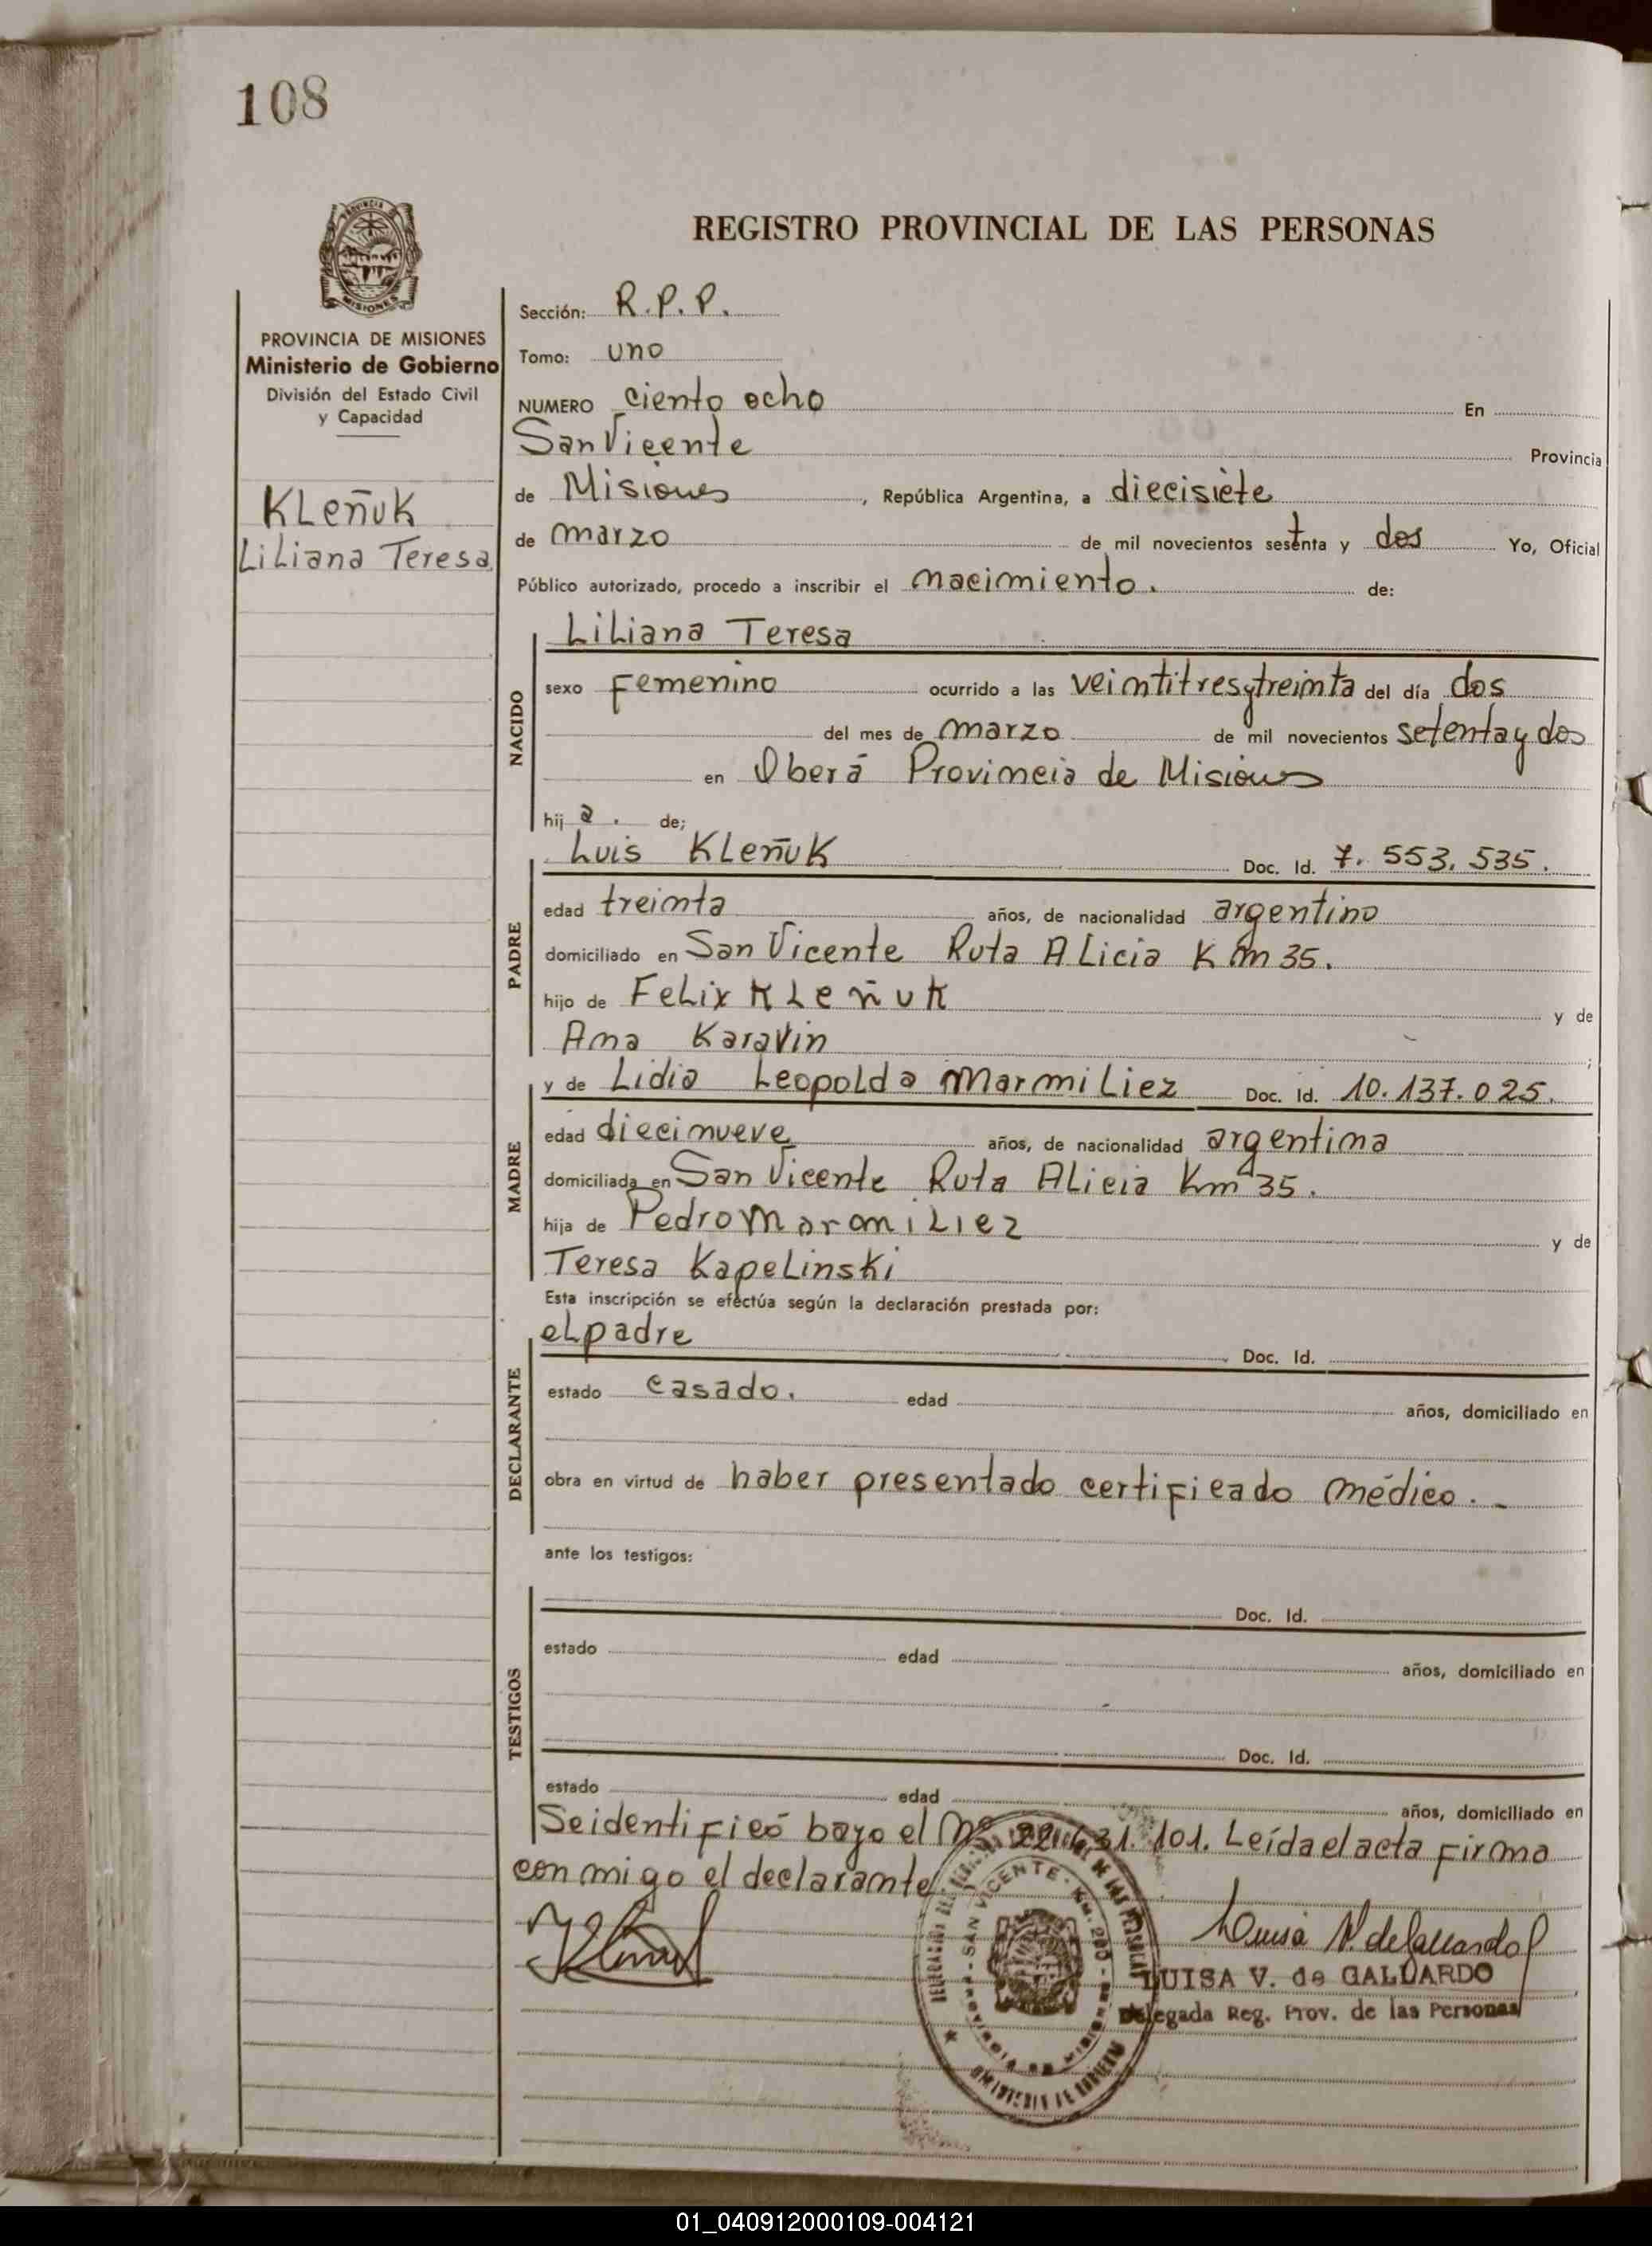 108
REGISTRO PROVINCIAL DE LAS PERSONAS
PROVINCIA
MISIONES
PROVINCIA DE MISIONES
Ministerio de Gobierno
División del Estado Civil
y Capacidad
Kleñuk
Liliana Teresa
Sección: R.P.P.
Tomo: uno
NUMERO ciento ocho En
San Vicente Provincia
de Misiones, República Argentina, a diecisiete
de marzo de mil novecientos setenta y dos Yo, Oficial
Público autorizado, procedo a inscribir el nacimiento. de:
NACIDO
Liliana Teresa
sexo femenino ocurrido a las veintitres y treinta del día dos
del mes de marzo de mil novecientos setenta y dos
en Oberá Provincia de Misiones
hij a. de;
PADRE
Luis Kleñuk Doc. Id. 7.553.535.
edad treinta años, de nacionalidad argentino
domiciliado en San Vicente Ruta Alicia Km 35.
hijo de Felix Kleñuk y de
Ana Karavin;
MADRE
y de Lidia Leopolda Marmiliez Doc. Id. 10.137.025.
edad diecinueve años, de nacionalidad argentina
domiciliada en San Vicente Ruta Alicia Km 35.
hija de Pedro Marmiliez y de
Teresa Kapelinski
Esta inscripción se efectúa según la declaración prestada por:
DECLARANTE
el padre Doc. Id.
estado casado. edad años, domiciliado en
obra en virtud de haber presentado certificado médico.-
ante los testigos:
TESTIGOS
Doc. Id.
estado edad años, domiciliado en
Doc. Id.
estado edad años, domiciliado en
Se identificó bajo el Nº 101. Leída el acta firma
conmigo el declarante
SAN VICENTE - Km. 200 -
MINISTERIO DE GOBIERNO
Luisa V. de Gallardo
LUISA V. de GALLARDO
Delegada Reg. Prov. de las Personas
01_040912000109-004121